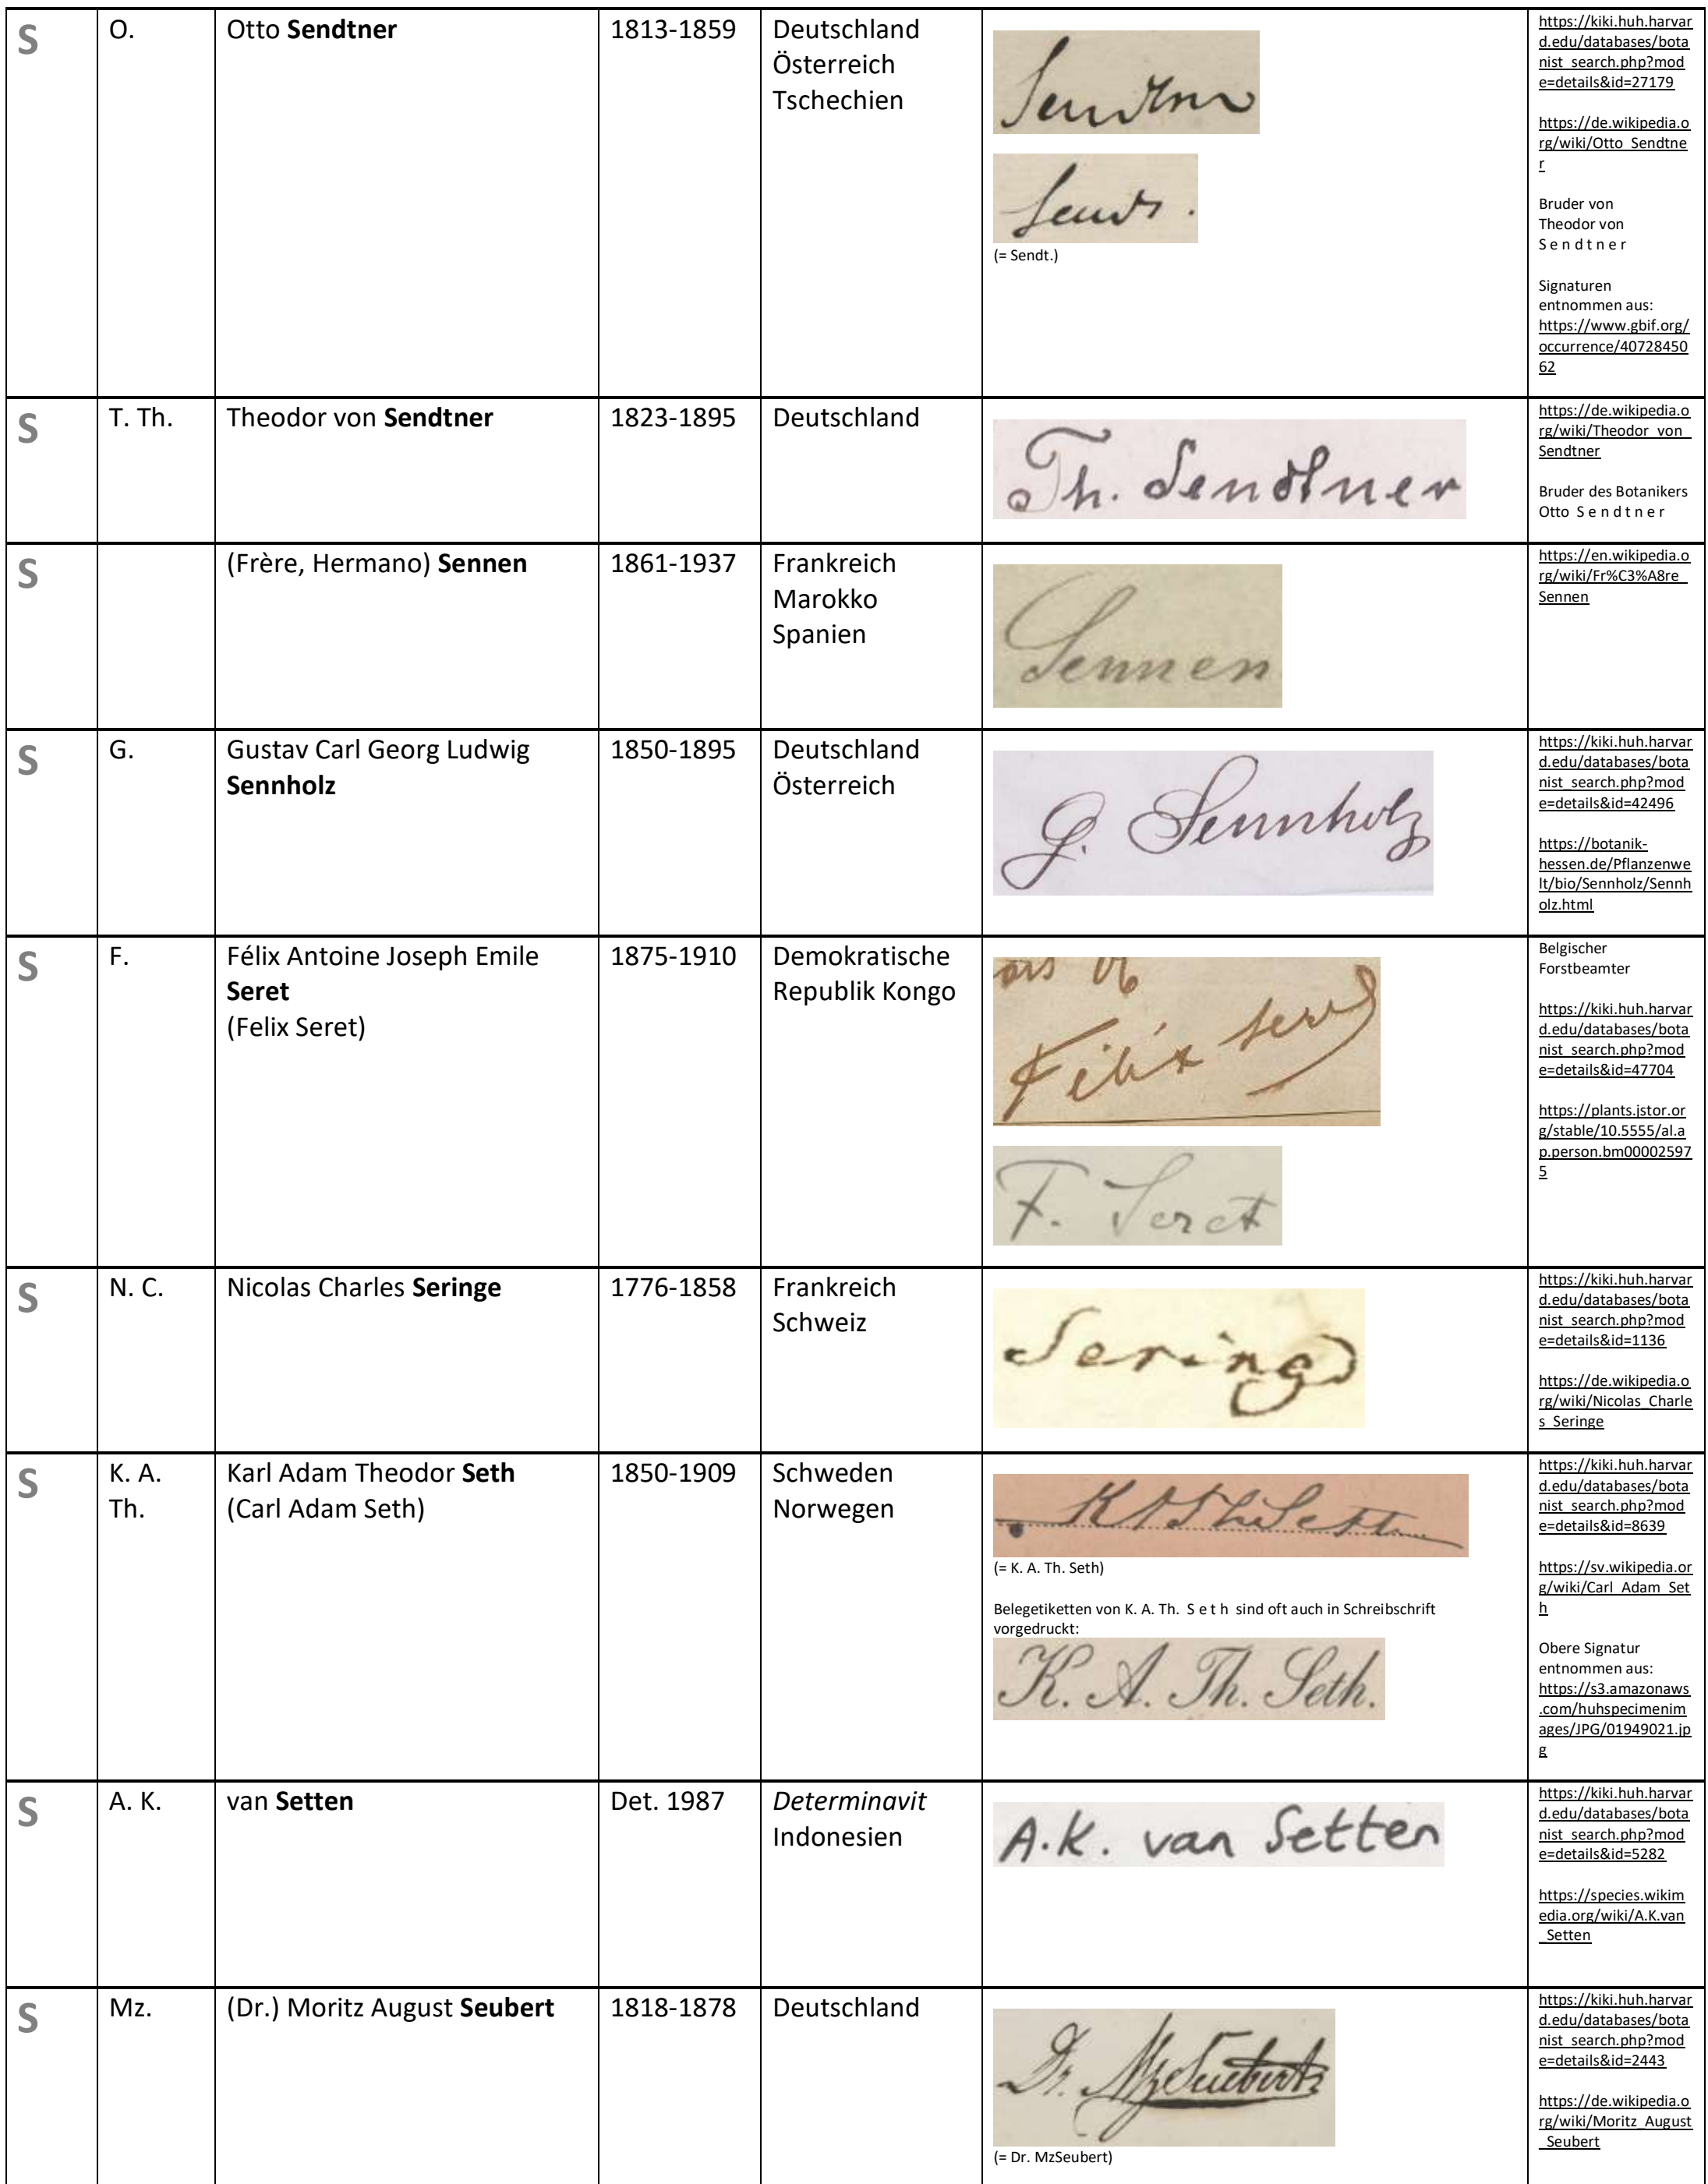 S
O.
Otto Sendtner
1813-1859
Deutschland
Österreich
Tschechien
Sendtner
Sendt.
(= Sendt.)
https://kiki.huh.harvar
d.edu/databases/bota
nist_search.php?mod
e=details&id=27179
https://de.wikipedia.o
rg/wiki/Otto_Sendtne
r
Bruder von
Theodor von
S e n d t n e r
Signaturen
entnommen aus:
https://www.gbif.org/
occurrence/40728450
62
S
T. Th.
Theodor von Sendtner
1823-1895
Deutschland
Th. Sendtner
https://de.wikipedia.o
rg/wiki/Theodor_von_
Sendtner
Bruder des Botanikers
Otto S e n d t n e r
S
(Frère, Hermano) Sennen
1861-1937
Frankreich
Marokko
Spanien
Sennen
https://en.wikipedia.o
rg/wiki/Fr%C3%A8re_
Sennen
S
G.
Gustav Carl Georg Ludwig
Sennholz
1850-1895
Deutschland
Österreich
G. Sennholz
https://kiki.huh.harvar
d.edu/databases/bota
nist_search.php?mod
e=details&id=42496
https://botanik-
hessen.de/Pflanzenwe
lt/bio/Sennholz/Sennh
olz.html
S
F.
Félix Antoine Joseph Emile
Seret
(Felix Seret)
1875-1910
Demokratische
Republik Kongo
Félix Seret
F. Seret
Belgischer
Forstbeamter
https://kiki.huh.harvar
d.edu/databases/bota
nist_search.php?mod
e=details&id=47704
https://plants.jstor.or
g/stable/10.5555/al.a
p.person.bm00002597
5
S
N. C.
Nicolas Charles Seringe
1776-1858
Frankreich
Schweiz
Seringe
https://kiki.huh.harvar
d.edu/databases/bota
nist_search.php?mod
e=details&id=1136
https://de.wikipedia.o
rg/wiki/Nicolas_Charle
s_Seringe
S
K. A.
Th.
Karl Adam Theodor Seth
(Carl Adam Seth)
1850-1909
Schweden
Norwegen
K A Th Seth
(= K. A. Th. Seth)
Belegetiketten von K. A. Th. S e t h sind oft auch in Schreibschrift
vorgedruckt:
K. A. Th. Seth.
https://kiki.huh.harvar
d.edu/databases/bota
nist_search.php?mod
e=details&id=8639
https://sv.wikipedia.or
g/wiki/Carl_Adam_Set
h
Obere Signatur
entnommen aus:
https://s3.amazonaws
.com/huhspecimenim
ages/JPG/01949021.jp
g
S
A. K.
van Setten
Det. 1987
Determinavit
Indonesien
A.K. van Setten
https://kiki.huh.harvar
d.edu/databases/bota
nist_search.php?mod
e=details&id=5282
https://species.wikim
edia.org/wiki/A.K.van
_Setten
S
Mz.
(Dr.) Moritz August Seubert
1818-1878
Deutschland
Dr. MzSeubert
(= Dr. MzSeubert)
https://kiki.huh.harvar
d.edu/databases/bota
nist_search.php?mod
e=details&id=2443
https://de.wikipedia.o
rg/wiki/Moritz_August
_Seubert